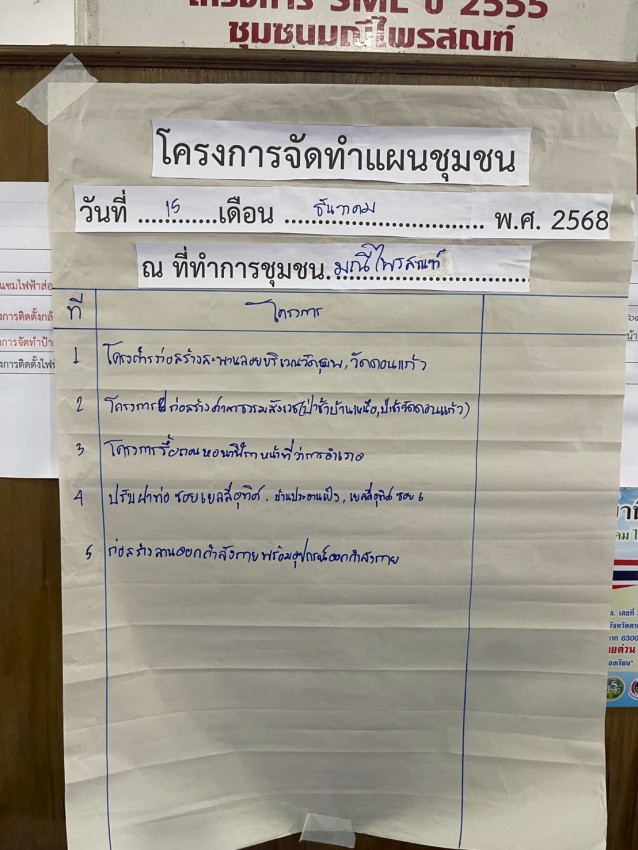 โครงการ SML ปี 2555
ชุมชนมณีไพรสณฑ์
โครงการจัดทำแผนชุมชน
วันที่ .....15.....เดือน .....ธันวาคม..... พ.ศ. 2568
ณ ที่ทำการชุมชน.มณีไพรสณฑ์
ที่ โครงการ
1 โครงการก่อสร้างสะพานลอยบริเวณวัดชุมพล, วัดดอนแก้ว
2 โครงการก่อสร้างศาลาธรรมสังเวช(ป่าช้าบ้านเหนือ,ป่าช้าวัดดอนแก้ว)
3 โครงการรื้อถอนหอนาฬิกาหน้าที่ว่าการอำเภอ
4 ปรับฝาท่อ ซอยเยลลี่อุทิศ, เยลลี่อุทิศ ซอย 6
5 ก่อสร้างลานออกกำลังกายพร้อมอุปกรณ์ออกกำลังกาย